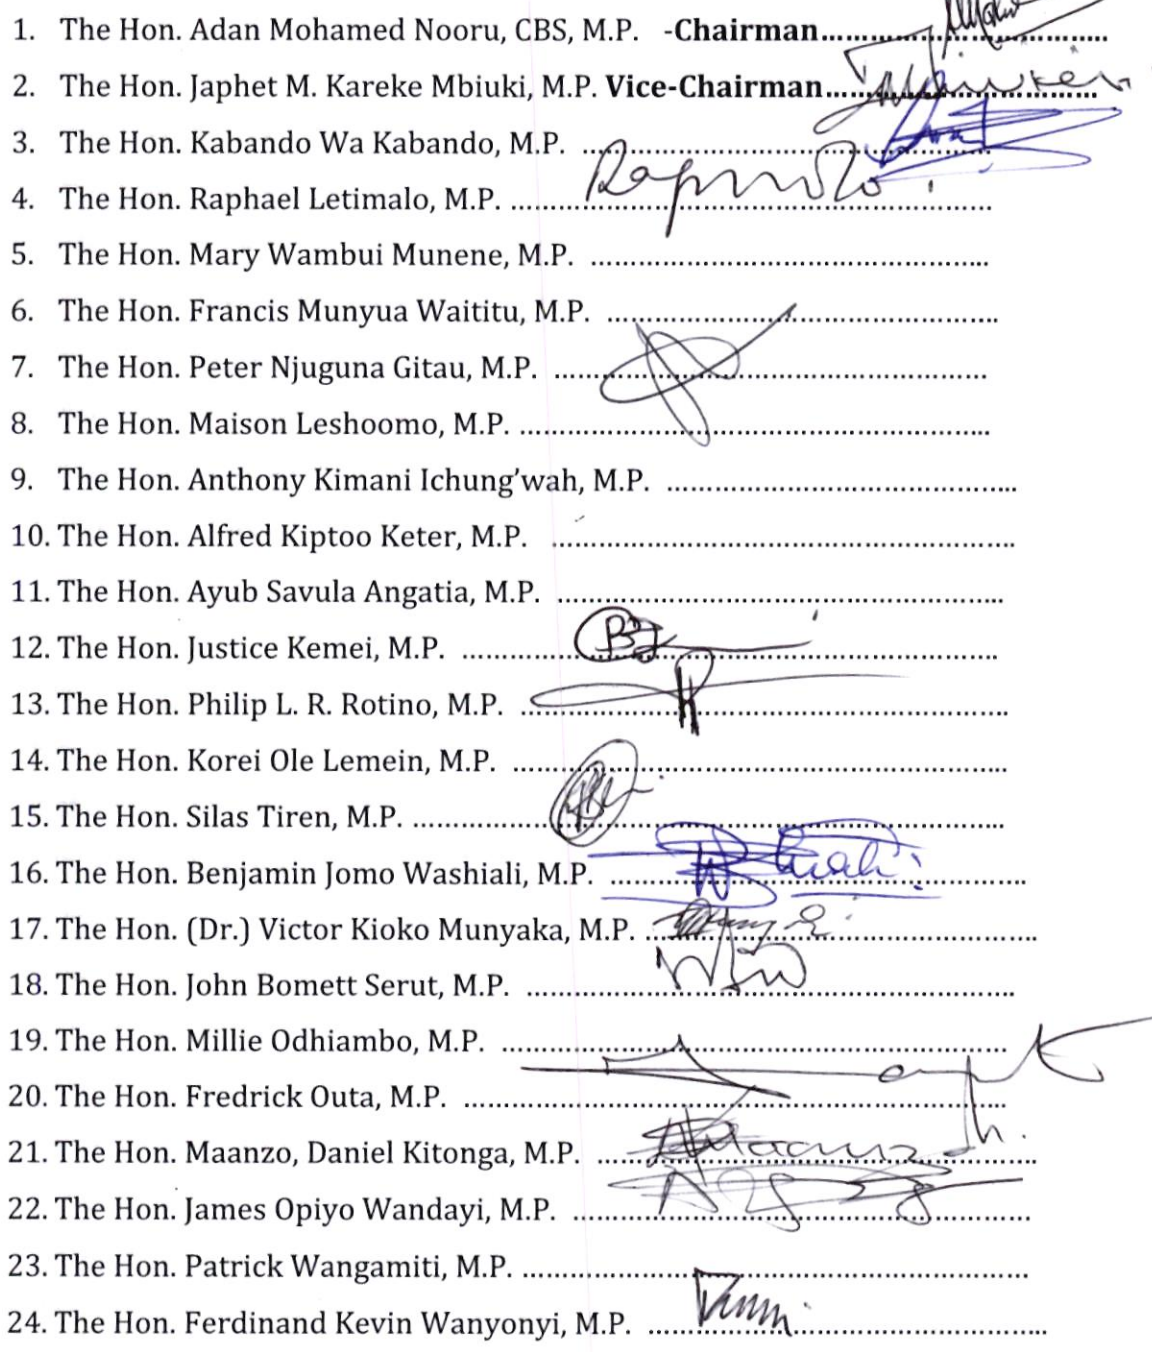 1. The Hon. Adan Mohamed Nooru, CBS, M.P. -Chairman...............................................
2. The Hon. Japhet M. Kareke Mbiuki, M.P. Vice-Chairman...............................................
3. The Hon. Kabando Wa Kabando, M.P. ...............................................
4. The Hon. Raphael Letimalo, M.P. ...............................................
5. The Hon. Mary Wambui Munene, M.P. ...............................................
6. The Hon. Francis Munyua Waititu, M.P. ...............................................
7. The Hon. Peter Njuguna Gitau, M.P. ...............................................
8. The Hon. Maison Leshoomo, M.P. ...............................................
9. The Hon. Anthony Kimani Ichung’wah, M.P. ...............................................
10. The Hon. Alfred Kiptoo Keter, M.P. ...............................................
11. The Hon. Ayub Savula Angatia, M.P. ...............................................
12. The Hon. Justice Kemei, M.P. ...............................................
13. The Hon. Philip L. R. Rotino, M.P. ...............................................
14. The Hon. Korei Ole Lemein, M.P. ...............................................
15. The Hon. Silas Tiren, M.P. ...............................................
16. The Hon. Benjamin Jomo Washiali, M.P. ...............................................
17. The Hon. (Dr.) Victor Kioko Munyaka, M.P. ...............................................
18. The Hon. John Bomett Serut, M.P. ...............................................
19. The Hon. Millie Odhiambo, M.P. ...............................................
20. The Hon. Fredrick Outa, M.P. ...............................................
21. The Hon. Maanzo, Daniel Kitonga, M.P. ...............................................
22. The Hon. James Opiyo Wandayi, M.P. ...............................................
23. The Hon. Patrick Wangamiti, M.P. ...............................................
24. The Hon. Ferdinand Kevin Wanyonyi, M.P. ...............................................